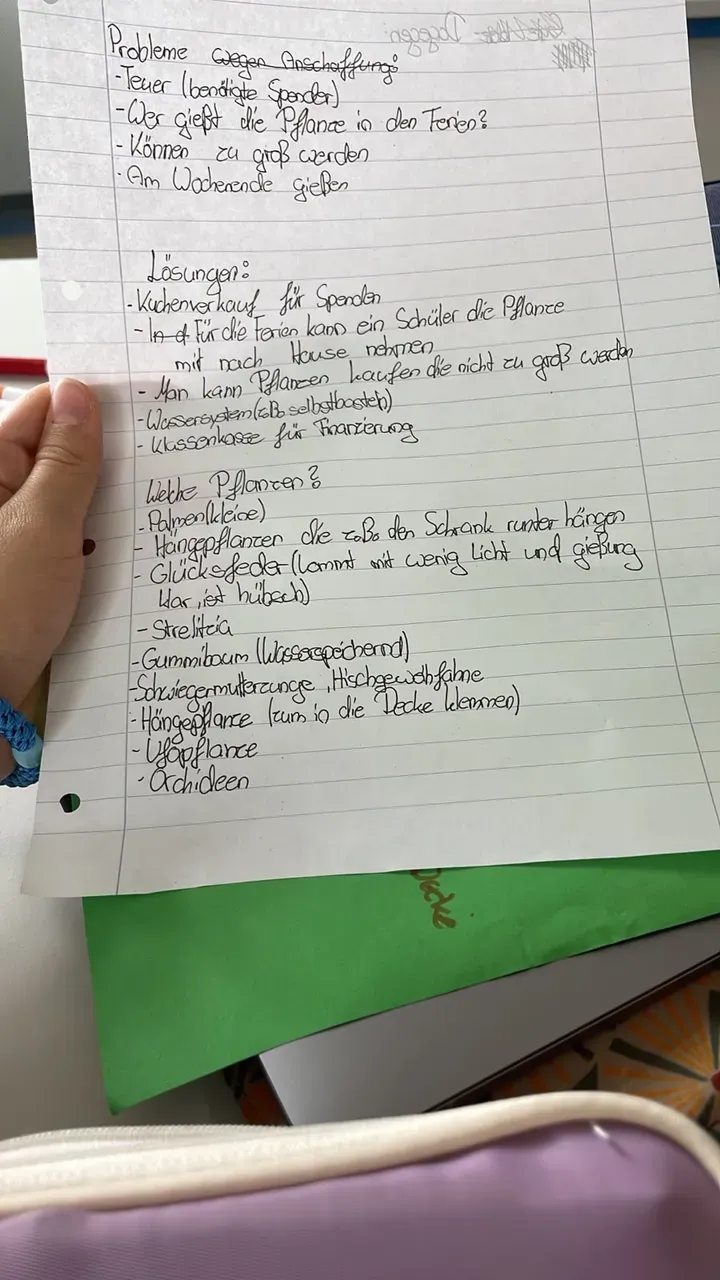 Probleme wegen Anschaffung:
-Teuer (benötigte Spender)
-Wer gießt die Pflanze in den Ferien?
- Können zu groß werden
- Am Wochenende gießen
Lösungen:
- Kuchenverkauf für Spenden
- In d Für die Ferien kann ein Schüler die Pflanze
mit nach Hause nehmen
- Man kann Pflanzen kaufen die nicht zu groß werden
- Wassersystem (z.B. selbstbasteln)
- Klassenkasse für Finanzierung
Welche Pflanzen?
- Palmen (kleine)
- Hängepflanzen die z.B. den Schrank runter hängen
- Glücksfeder (kommt mit wenig Licht und gießung
klar, ist hübsch)
- Strelitzia
- Gummibaum (Wasserspeichernd)
- Schwiegermutterzunge, Hischgeweihfahne
- Hängepflanze (zum in die Decke klemmen)
- Ufopflanze
- Orchideen
Decke